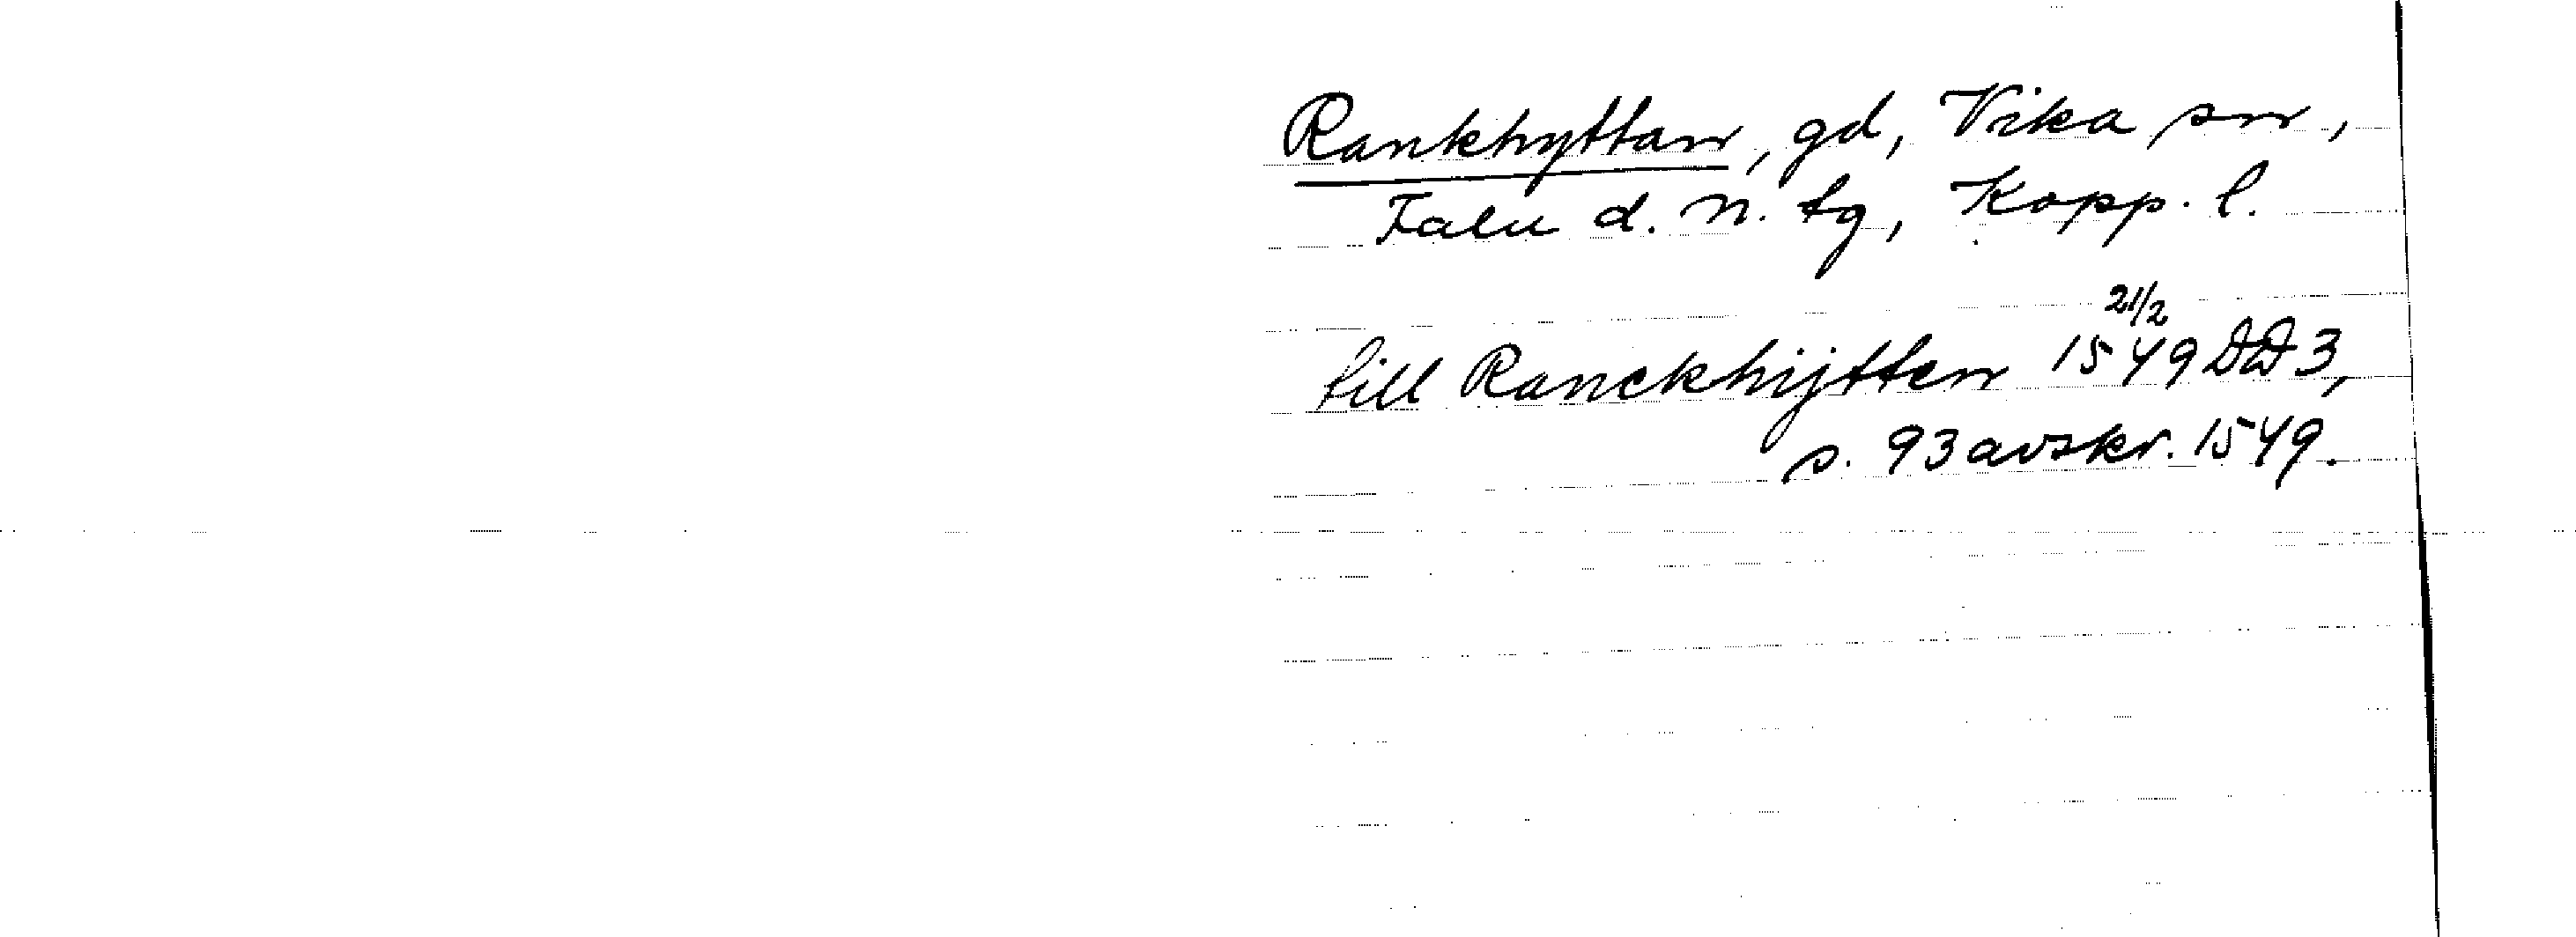 Rankhyttan, gd, Vika sn,
Falu d. N. tg, Kopp. l.
21/2
till Ranckhijtten 1549 DD 3,
s. 93 avskr. 1549.